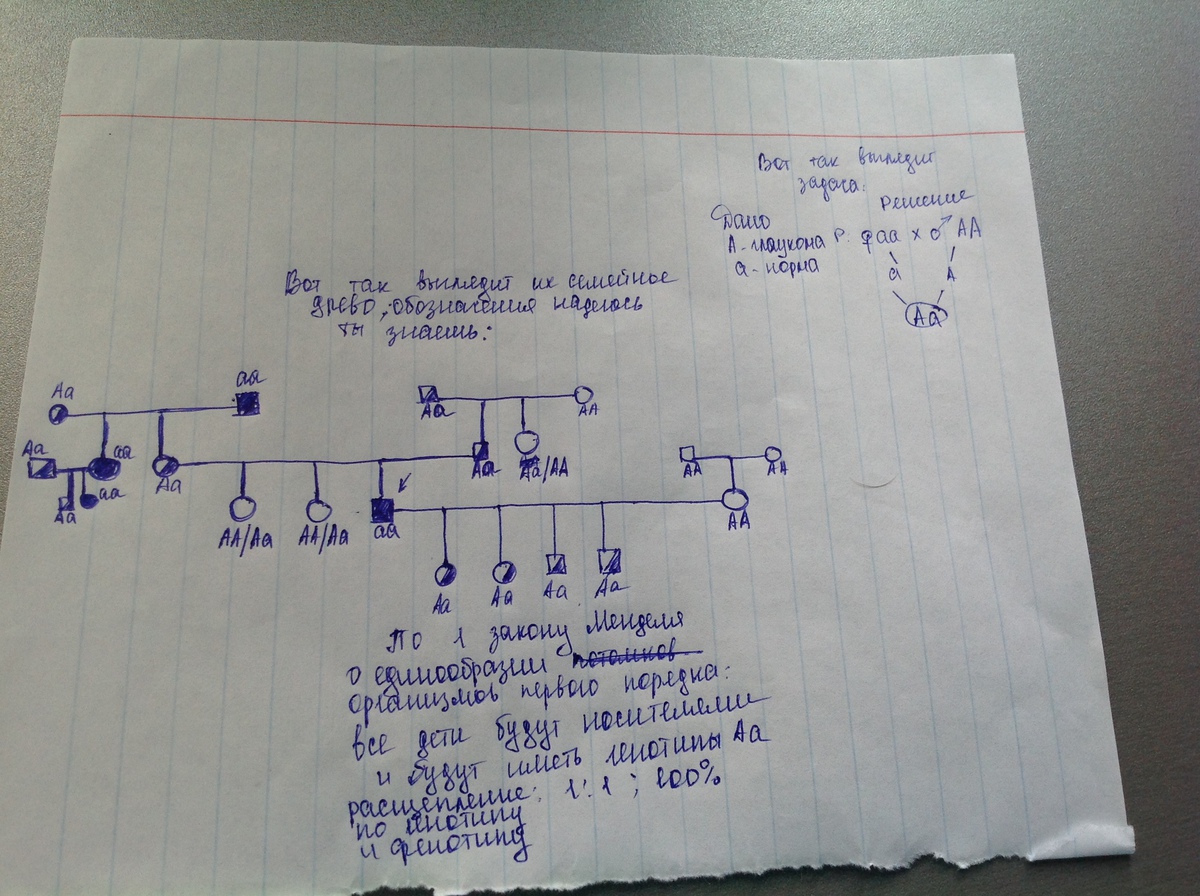 Вот так выглядит
задача:
Решение
Дано
А - глаукома Р: ♀ аа х ♂ АА
а - норма
а А
Аа
Вот так выглядит их семейное
древо, обозначения надеюсь
ты знаешь:
Аа аа
Аа АА
Аа аа Аа Аа Аа/АА АА АА
Аа аа
АА/Аа АА/Аа аа АА
Аа Аа Аа Аа
По 1 закону Менделя
о единообразии потомков
организмов первого порядка:
все дети будут носителями
и будут иметь генотипы Аа
расщепление: 1:1 ; 100%
по генотипу
и фенотипу